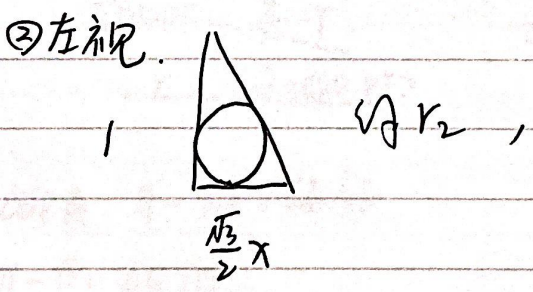 ②左视.
1 的 r₂ ,
√3/2 x